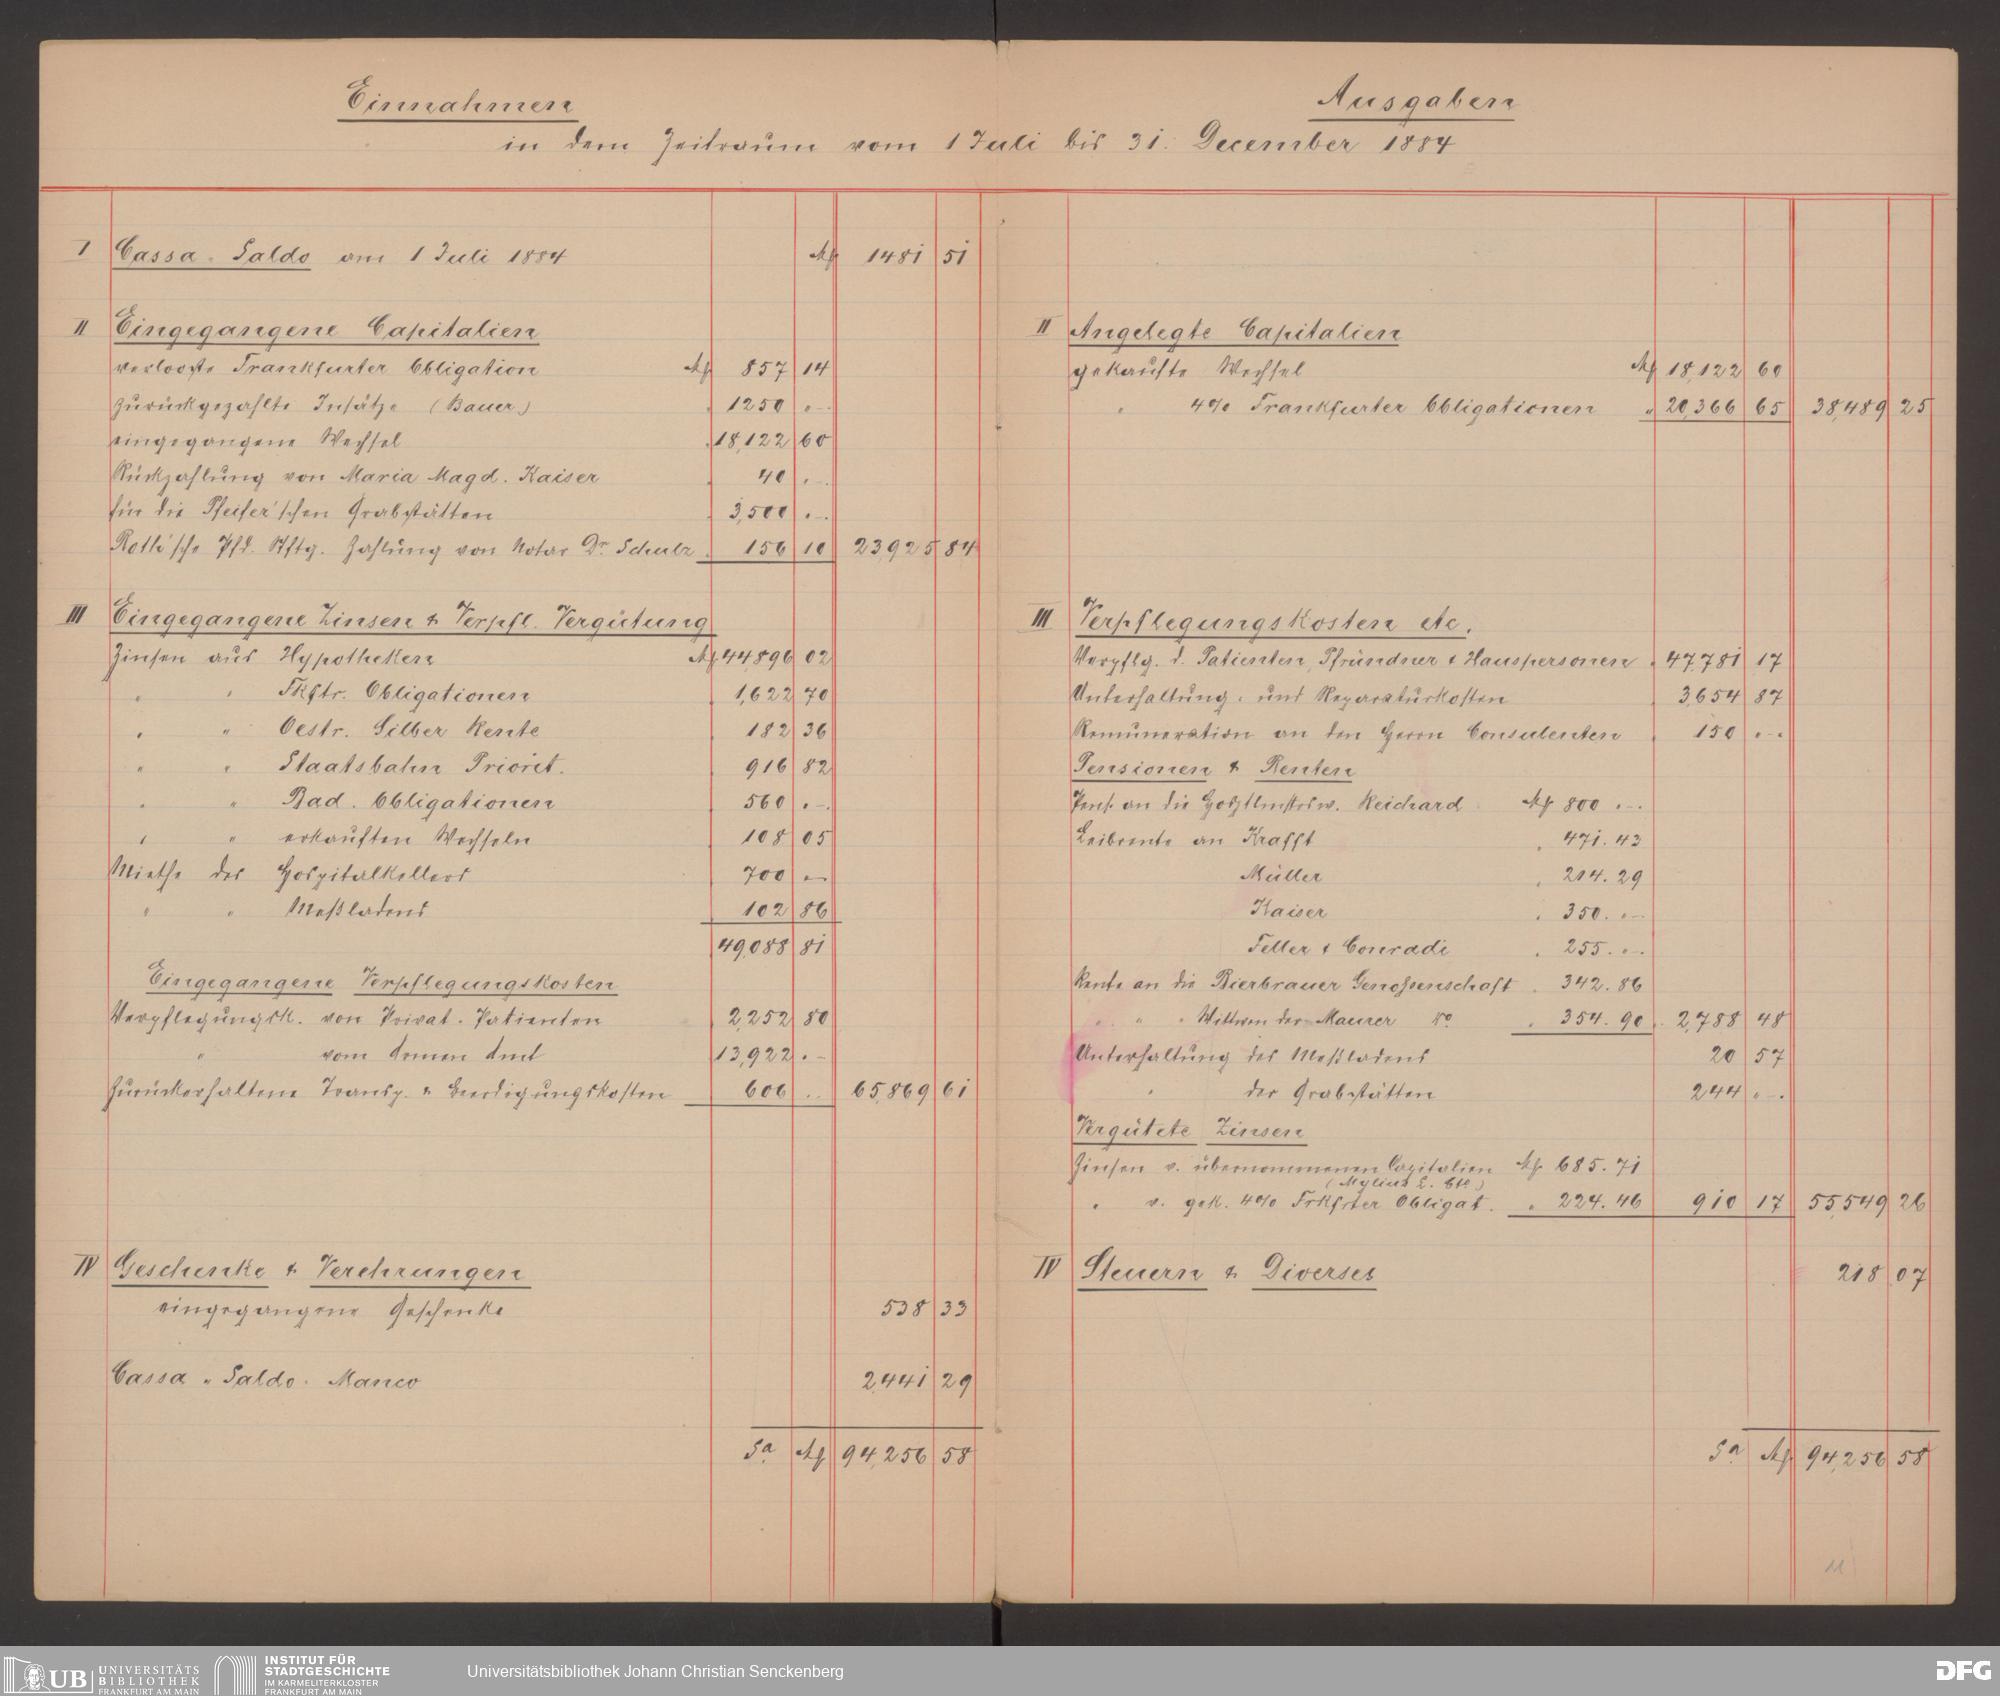 Einnahmen
Ausgaben
in dem Zeitraum vom 1 Juli bis 31. December 1884
I Cassa-Saldo am 1 Juli 1884 M 1481 51
II Eingegangene Capitalien
verlooste Frankfurter Obligation M 857 14
Zurückgezahlte Insätze (Bauer) " 1250 "-
eingegangene Wechsel " 18,122 60
Rückzahlung von Maria Magd. Kaiser " 40 "-
für die Pfeifer'schen Grabstätten " 3,500 "-
Roth'sche Pfd. Stftg. Zahlung von Notar Dr Schulz " 156 10 23,925 84
III Eingegangene Zinsen & Verpfl. Vergütung
Zinsen aus Hypotheken M 44896 02
" " Fkftr. Obligationen " 1,622 70
" " Oestr. Silber Rente " 182 36
" " Staatsbahn Priorit. " 916 82
" " Bad. Obligationen " 560 "-
" " erkauften Wechseln " 108 05
Miethe des Hospitalkellers " 700 "-
" " Meßladens " 102 86
49,088 81
Eingegangene Verpflegungskosten
Verpflegungsk. von Privat-Patienten " 2,252 80
" vom Armen Amt 13,922 "-
Zurückerhaltene Transp. & Beerdigungskosten 606 .. 65,869 61
IV Geschenke & Verehrungen
eingegangene Geschenke 538 33
Cassa-Saldo-Manco 2,441 29
Sa. M 94,256 58
II Angelegte Capitalien
gekaufte Wechsel M 18,122 60
" 4% Frankfurter Obligationen " 20,366 65 38,489 25
III Verpflegungskosten etc.
Verpflg. d. Patienten, Pfründner & Hauspersonen " 47,781 17
Unterhaltung- und Reparaturkosten " 3,654 87
Remuneration an den Herrn Consulenten " 150 "-
Pensionen & Renten
Pens. an die Reichard M 800 "-
Leibrente an Krafft " 471.43
Müller " 214.29
Kaiser " 350. "-
Feller & Conradi " 255. "-
Rente an die Bierbrauer Genossenschaft " 342.86
" " " Wittwen der Maurer do " 354.90 " 2,788 48
Unterhaltung des Meßladens 20 57
" der Grabstätten 244 "-
Vergütete Zinsen
Zinsen v. übernommenen Capitalien M 685.71
(Mylius L. Cto.)
" v. gek. 4% Frkfrter Obligat. " 224.46 910 17 55,549 26
IV Steuern & Diverses 218 07
Sa. M 94,256 58
11
UB UNIVERSITÄTS BIBLIOTHEK FRANKFURT AM MAIN
INSTITUT FÜR STADTGESCHICHTE IM KARMELITERKLOSTER FRANKFURT AM MAIN
Universitätsbibliothek Johann Christian Senckenberg
DFG